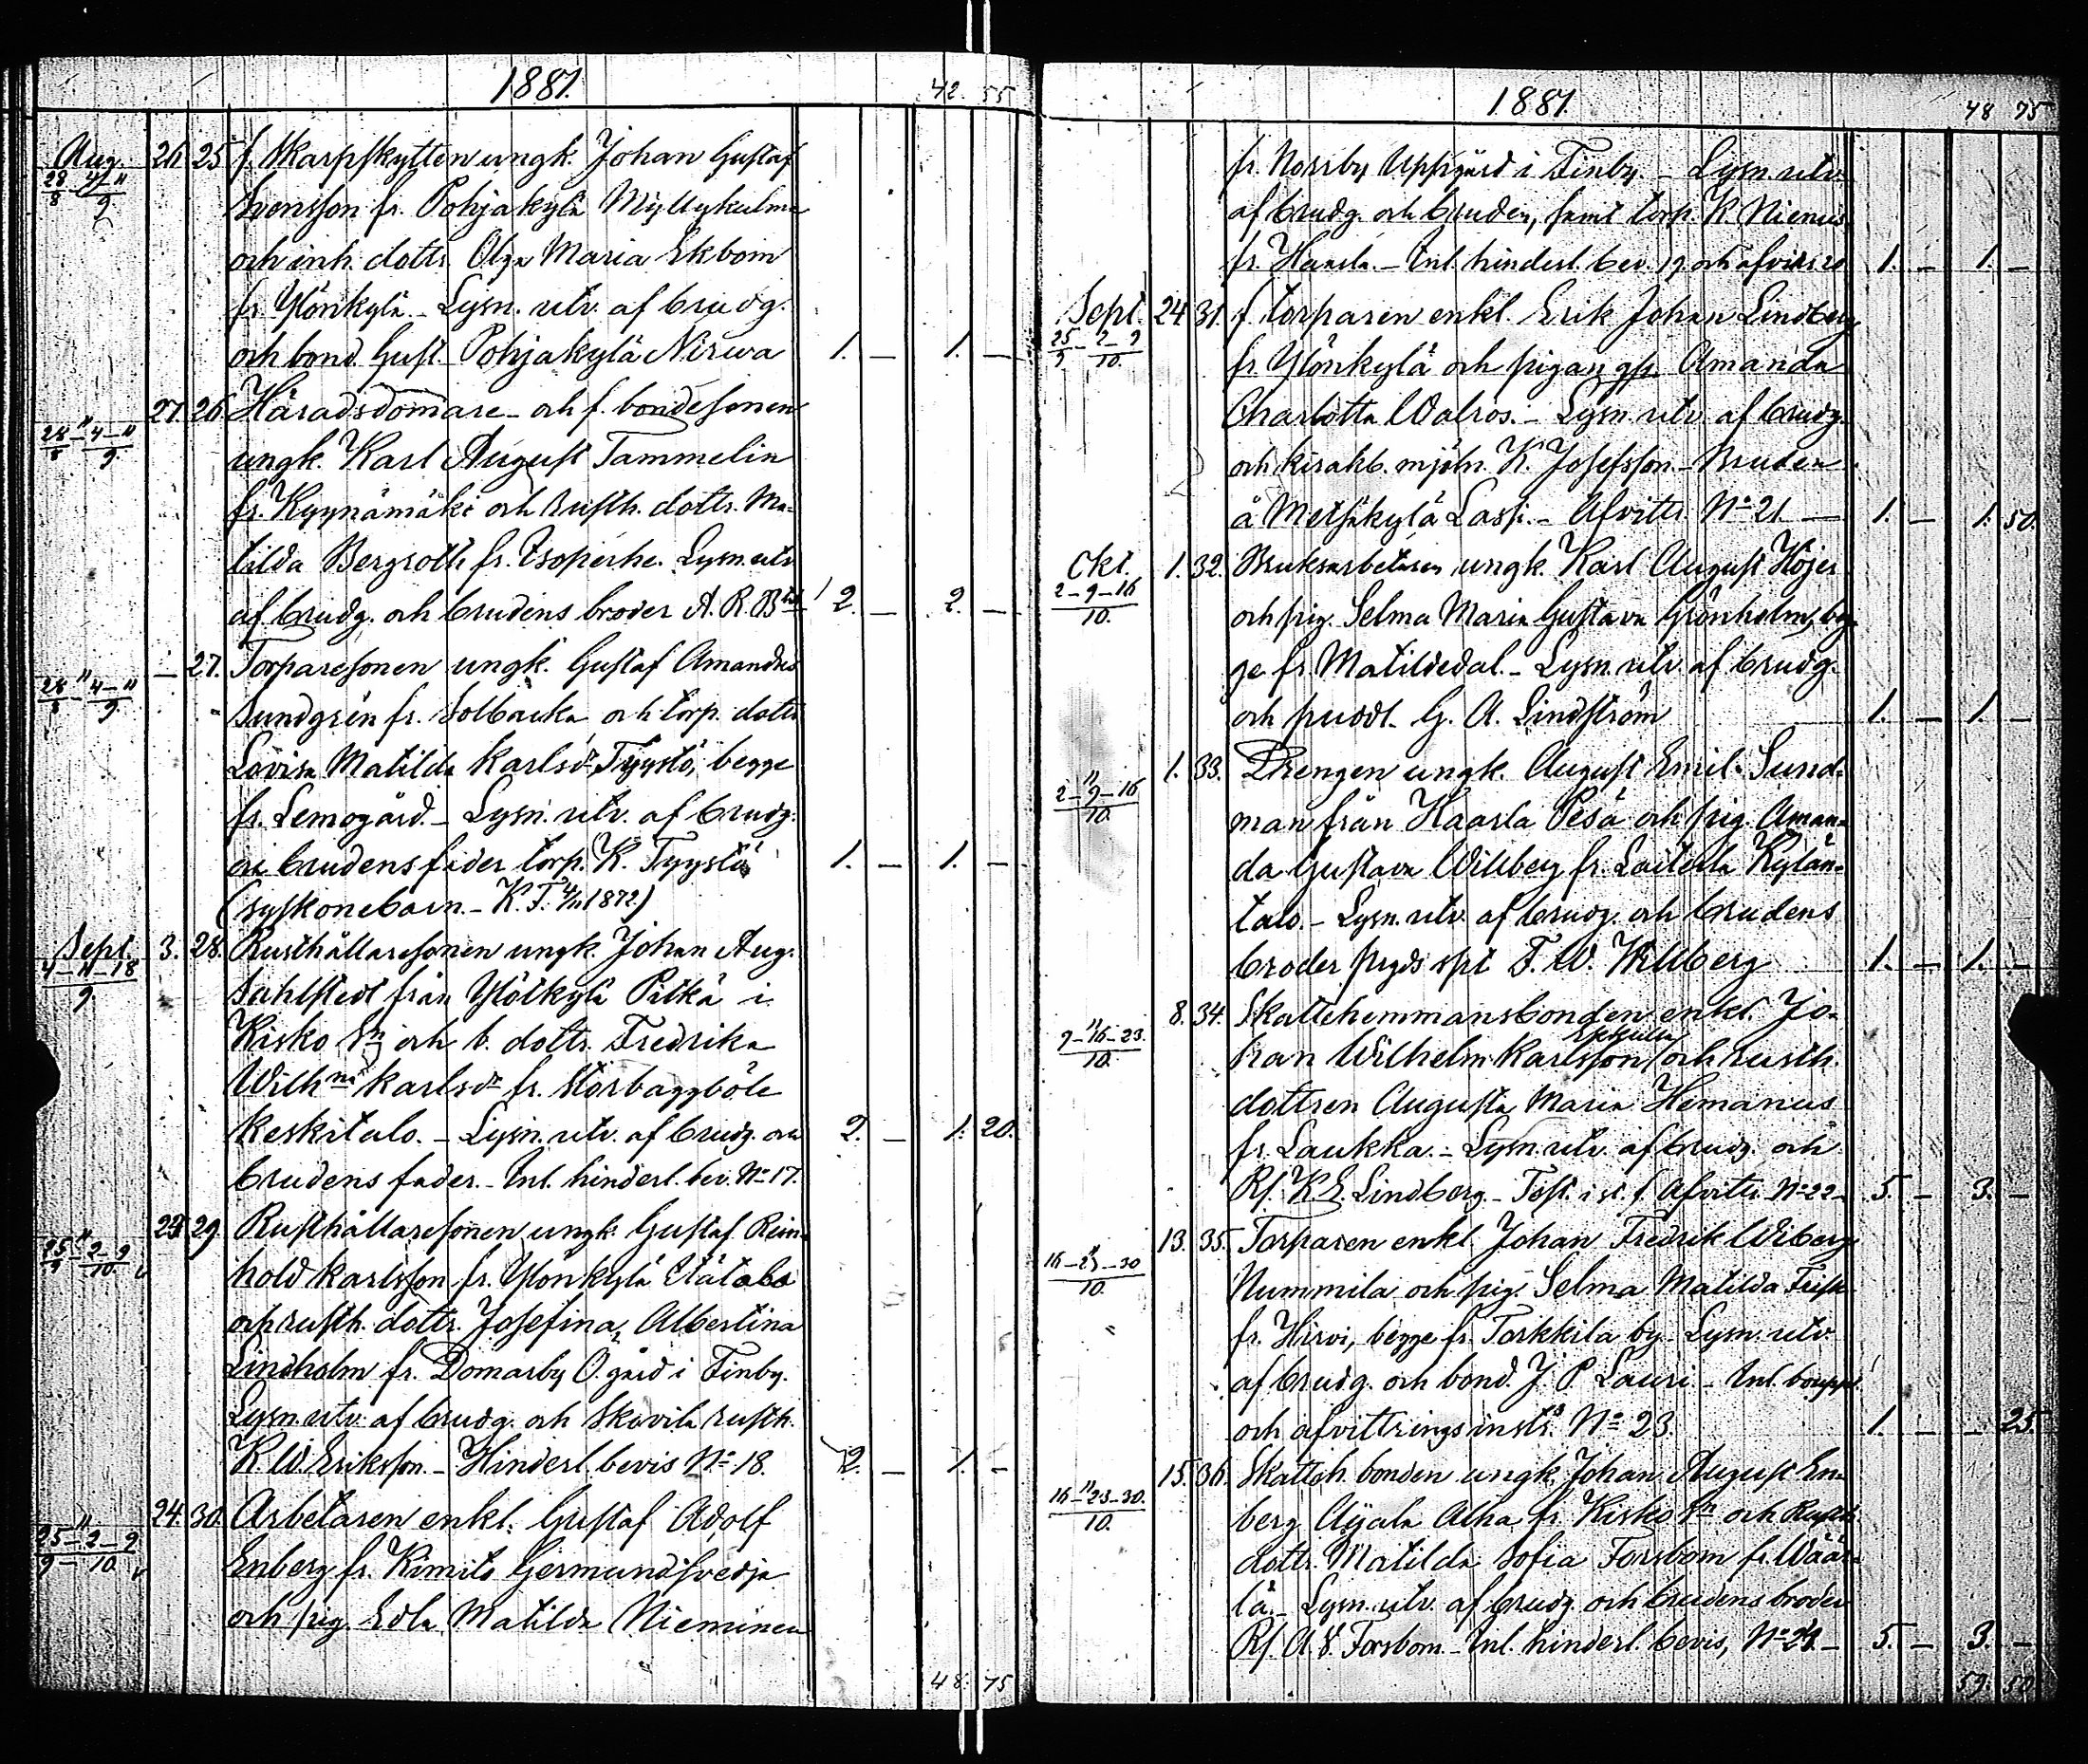 1881.
42. 55
Aug. 26. 25. f. Skarpskytten ungk. Johan Gustaf
28/8 4-11/9
Svensson fr. Pohjakylä Myllykulma
och inh. dottr. Olga Maria Ekbom
fr. Ylönkylä. - Lysn. utv. af brudg.
och bond. Gust. Pohjakylä Nirwa 1. — 1. —
27. 26. Häradsdomare- och f. bondesonen
28/8 " 4-11/9
ungk. Karl August Tammelin
fr. Kyynämäki och rusth. dottr. Ma-
tilda Bergroth fr. Isoperhe. Lysn. utv.
af brudg. och brudens broder A. R. 2. — 2. —
— 27. Torparesonen ungk. Gustaf Amandus
28/8 " 4-11/9
Sundgrén fr. Solbacka och torp. dottr.
Lovisa Matilda Karlsdr Tyystö, begge
fr. Lemogård. - Lysn. utv. af brudg.
o. brudens fader torp. K. Tyystö 1. — 1. —
(syskonebarn. - K. F. 4/11 1872)
Sept. 3. 28. Rusthållaresonen ungk. Johan Aug.
4-11-18/9.
Sahlstedt från Ylötkylä Pitkä i
Kisko Sn och b. dottr. Fredrika
Wilhna Karlsdr fr. Storbaggböle
Keskitalo. - Lysn. utv. af brudg. och 2. — 1. 20.
brudens fader. - Inl. hinderl. bev. No 17.
24. 29. Rusthållaresonen ungk. Gustaf Rein-
25/9 " 2-9/10
hold Karlsson fr. Ylönkylä Ylätalo
och rusth. dottr. Josefina Albertina
Lindholm fr. Domarby O.gård i Finby.
Lysn. utv. af brudg. och Skovila rusth.
K. W. Eriksson. - Hinderl. bevis No 18. 2. — 1. —
24. 30. Arbetaren enkl. Gustaf Adolf
25/9 " 2-9/10
Enberg fr. Kimito Germundsvedja
och pig. Edla Matilda Nieminen
48. 75
1881.
48 75
fr. Norrby Uppgård i Finby. - Lysn. utv.
af brudg. och bruden, samt torp. K. Niemis
fr. Haarla. - Inl. hinderl. bev. 19 och afvittr. 20 1. — 1. —
Sept. 24. 31. f. torparen enkl. Erik Johan Lindberg
25/9 - 2-9/10.
fr. Ylönkylä och pigan Amanda
Charlotta Walros. - Lysn. utv. af brudg.
och kirakb. mjöln. K. Josefsson. - Bruden
å Metsäkylä Lassi. - Afvittr. No 21. — 1. — 1. 50.
Okt. 1. 32. Bruksarbetaren, ungk. Karl August Höjer
2-9-16/10.
och pig. Selma Maria Gustava Grönholm, beg-
ge fr. Matildedal. - Lysn. utv. af brudg.
och puddl. G. A. Lindström 1. — 1. —
1. 33. Drengen ungk. August Emil Sund-
" 2-9-16/10.
man från Haarla Pesä och pig. Aman-
da Gustava Willberg fr. Laiterla Kylän-
talo. - Lysn. utv. af brudg. och brudens
broder F. W. Willberg 1. — 1. —
8. 34. Skattehemmansbonden enkl. Jo-
" 9-16-23./10.
han Wilhelm Karlsson och rusth.
dottren Augusta Maria Hemanus
fr. Laukka. - Lysn. utv. af brudg. och
Rf. K. E. Lindberg - Afvittr. No 22 - 5. — 3. —
13. 35. Torparen enkl. Johan Fredrik Wiberg
" 16-23-30/10.
Nummila och pig. Selma Matilda Frisk
fr. Hirvi, begge fr. Torkkila by. Lysn. utv.
af brudg. och bond. J. P. Lauri. - Inl. bouppt.
och afvittringsinstr. No 23. 1. — — 25.
15. 36. Skatteh. bonden ungk. Johan August En-
" 16-23-30./10.
berg Aijala Alha fr. Kisko Sn och Rusth.
dottr. Matilda Sofia Forsbom fr. Wäär-
lä. - Lysn. utv. af brudg. och brudens broder
Rf. A. V. Forsbom. - Inl. hinderl. bevis, No 24. - 5. — 3. —
59. 50